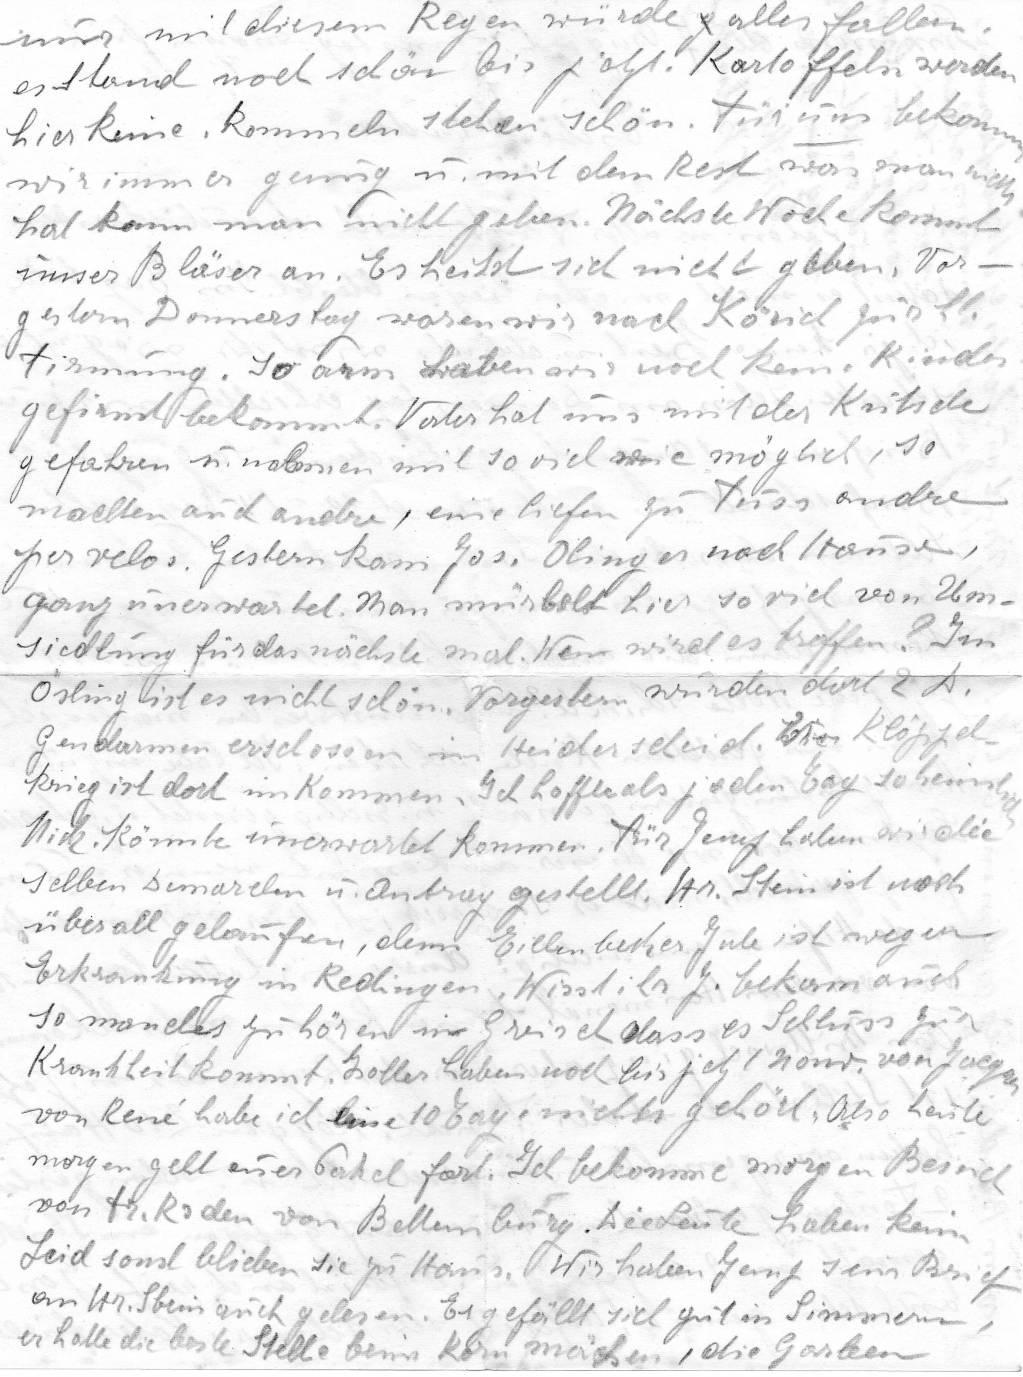 nur mit diesem Regen würde alles fallen.
es stand noch schön bis jetzt. Kartoffeln werden
hier keine. Rommeln stehen schön. Für uns bekommen
wir immer genug u. mit dem Rest was man nicht
hat kann man nicht geben. Nächste Woche kommt
unser Bläser an. Es heisst sich nicht geben. Vor-
gestern Donnerstag waren wir nach Körich zur hl.
Firmung. So arm haben wir noch kein Kinder
gefirmt bekommt. Vater hat uns mit der Kutsche
gefahren u. nahmen mit so viel wie möglich, so
machten auch andre, eine liefen zu Fuss andre
per velos. Gestern kam Jos. Olinger nach Hause,
ganz unerwartet. Man mürbelt hier so viel von Um-
siedlung für das nächste mal. Wem wird es treffen? Im
Ösling ist es nicht schön. Vorgestern wurden dort 2 D.
Gendarmen erschossen in Heiderscheid. Klöppel-
krieg ist dort im Kommen. Ich hoffte als jeden Tag so heimlich
Nick. könnte unerwartet kommen. Für Jeng haben wir die
selben Demarchen u. Antrag gestellt. Hr. Stein ist noch
überall gelaufen, denn Eillenbecker Jule ist wegen
Erkrankung in Redingen. Wisst ihr J. bekam auch
so manches zu hören in Greisch dass es Schluss zur
Krankheit kommt. Zoller haben noch bis jetzt 1 Nouv. von Jacques
von René habe ich eine 10 Tag nichts gehört. Also heute
morgen geht euer Paket fort. Ich bekomme morgen Besuch
von Fr. Roden von Bettemburg. Die Leute haben kein
Leid sonst blieben sie zu Haus. Wir haben Jeng sein Brief
an Hr. Stein auch gelesen. Er gefällt sich gut in Simmern,
er hatte die beste Stelle beim Korn mächen, die Garben